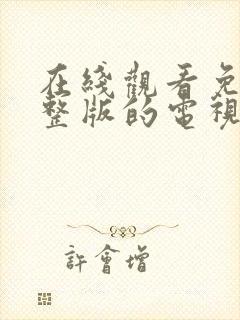 在綫觀看免
整版的電視
許會增